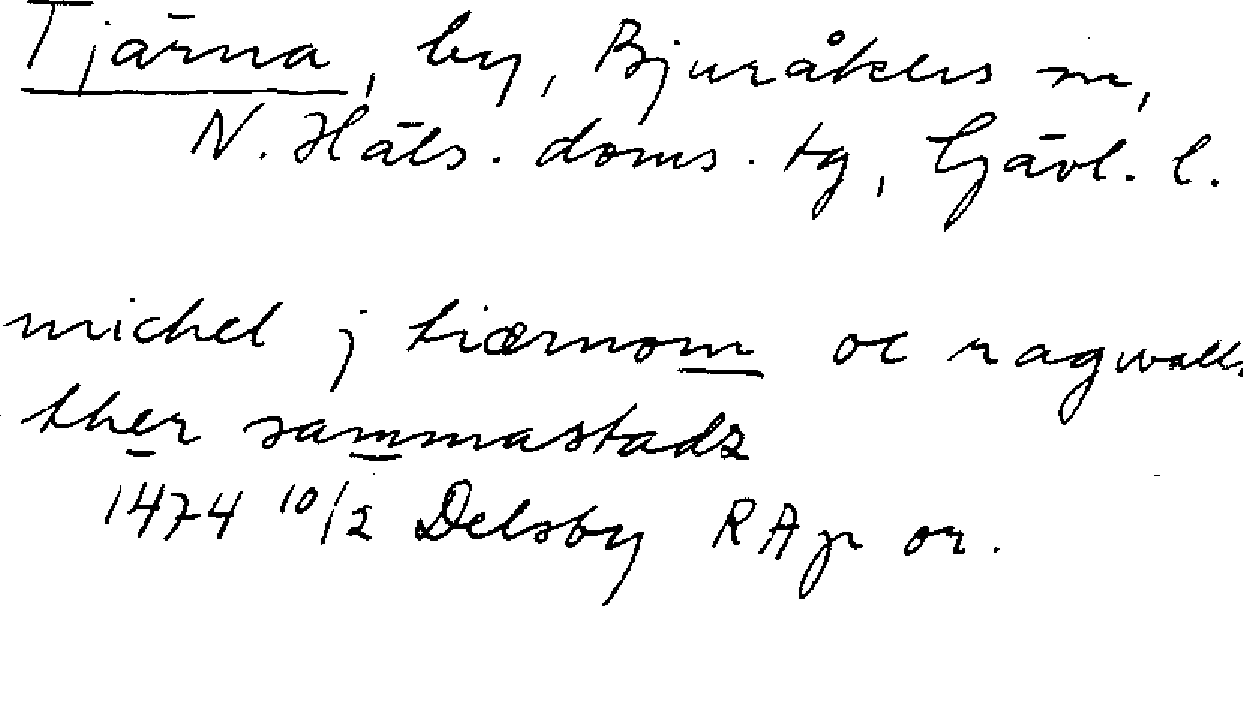 Tjärna, by, Bjuråkers sn,
N. Häls. doms. tg, Gävl. l.
michel j tiærnom oc ragwall
ther sammastadz
1474 10/2 Delsby RAp or.